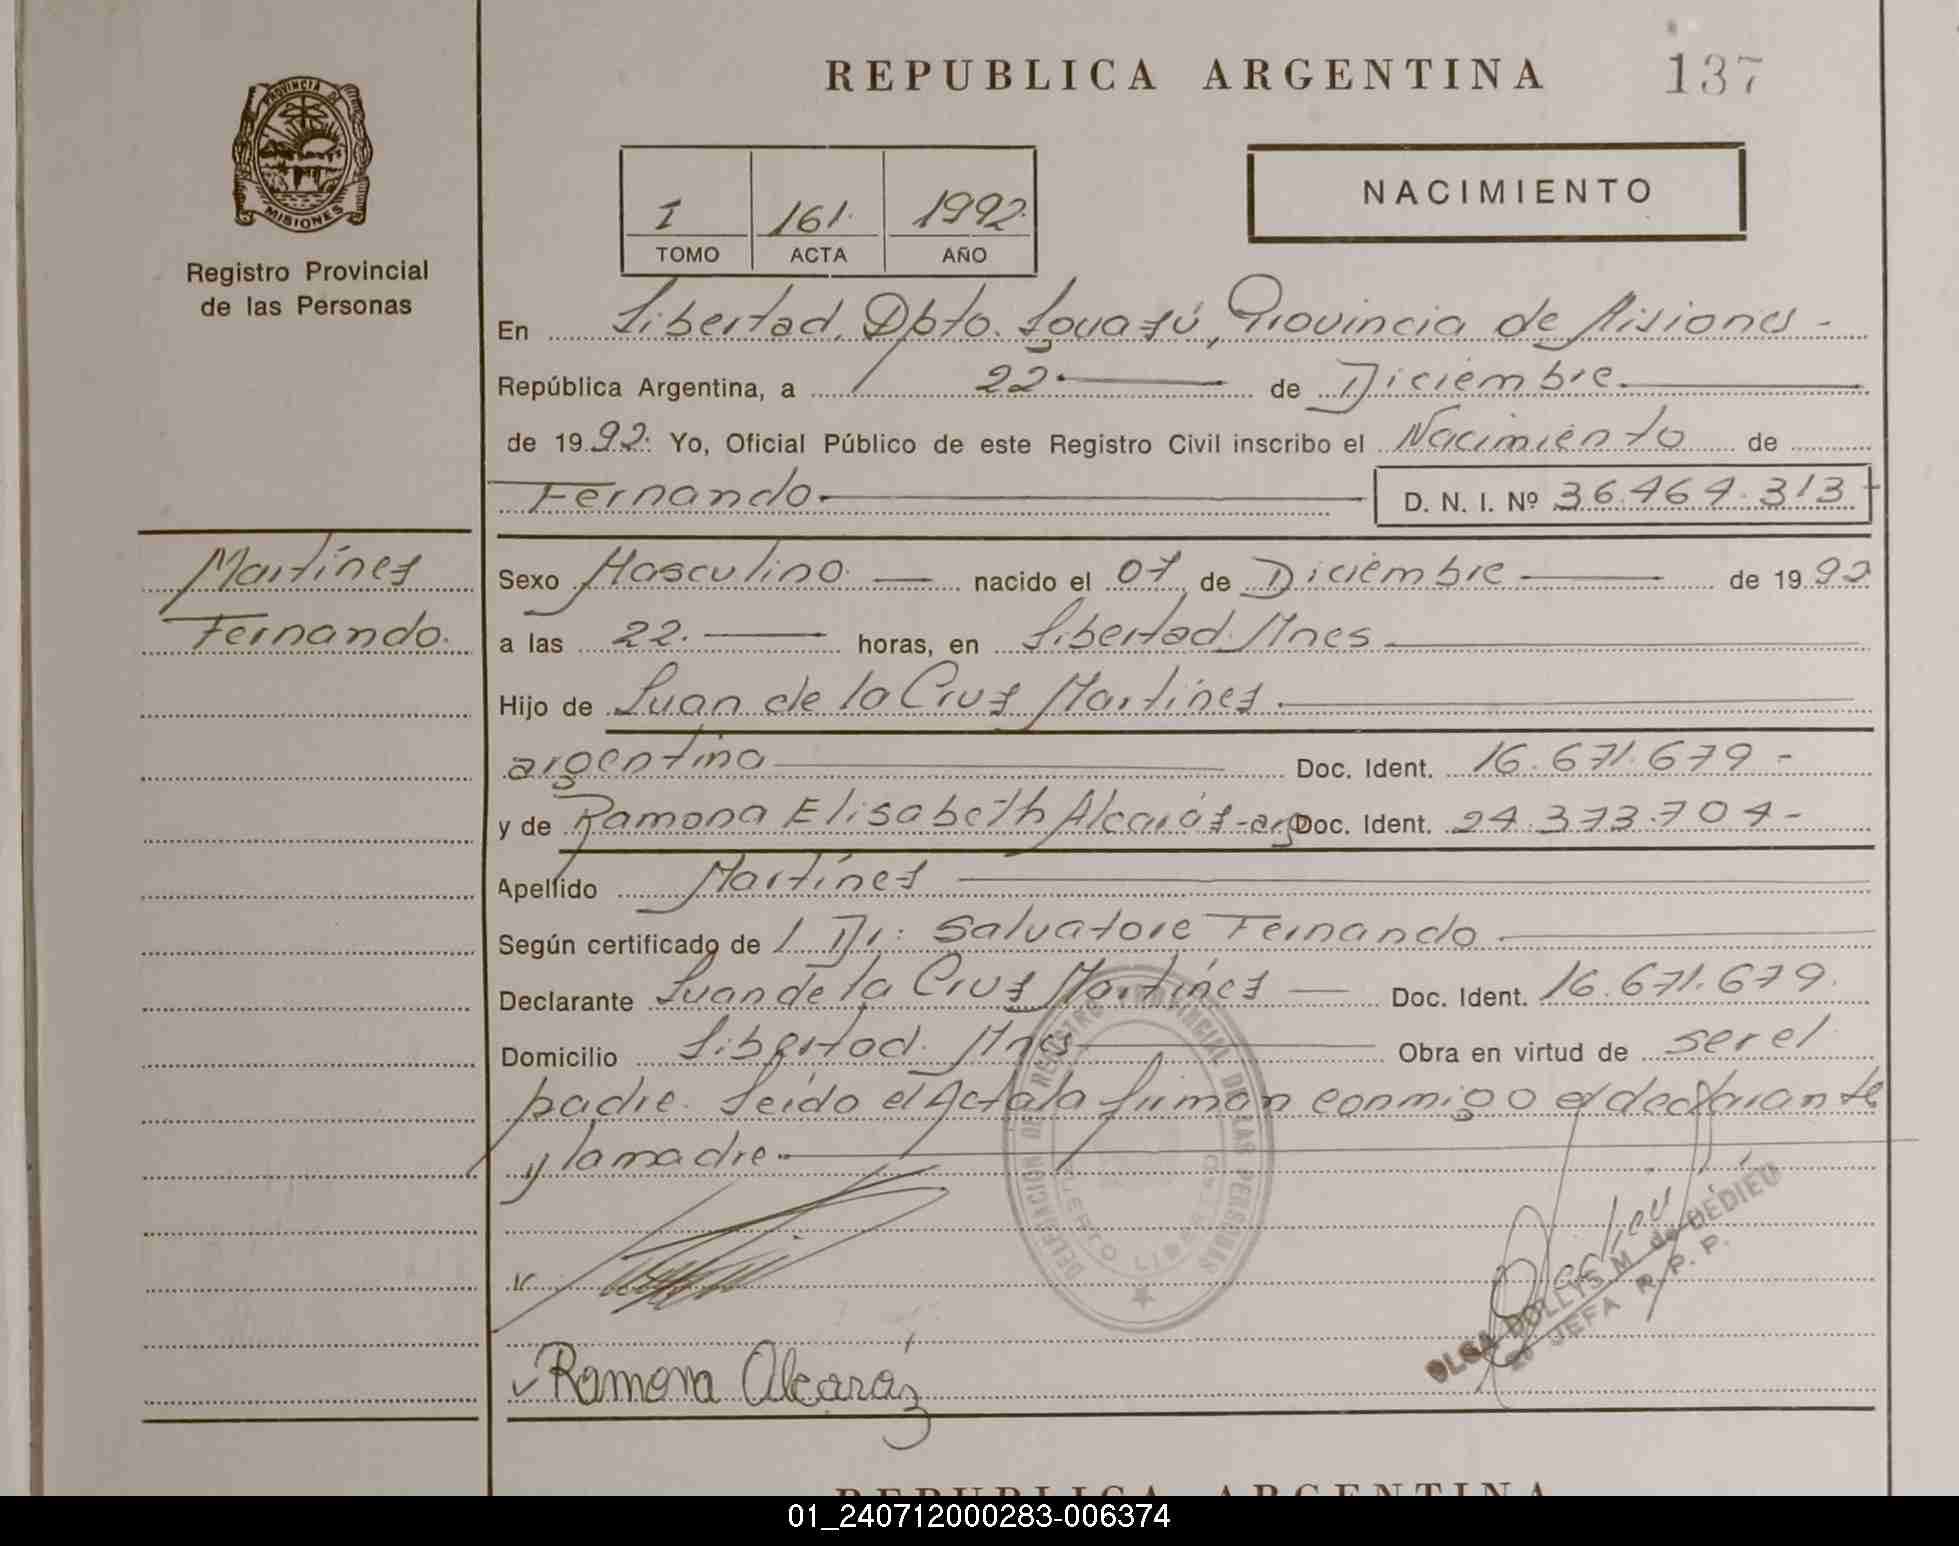 REPUBLICA ARGENTINA 137
PROVINCIA DE
MISIONES
Registro Provincial
de las Personas
I 161. 1992.
TOMO ACTA AÑO
NACIMIENTO
En Libertad, Dpto. Iguazú, Provincia de Misiones -
República Argentina, a 22 de Diciembre.
de 1992. Yo, Oficial Público de este Registro Civil inscribo el Nacimiento de
Fernando. D. N. I. Nº 36.464.313-
Martínez
Fernando.
Sexo Masculino. nacido el 07 de Diciembre de 1992
a las 22. horas, en Libertad. Mnes
Hijo de Juan de la Cruz Martínez.
argentina Doc. Ident. 16.671.679 -
y de Ramona Elisabeth Alcaráz-arg Doc. Ident. 24.373.704-
Apellido Martínez
Según certificado de Dr: Salvatore Fernando
Declarante Juan de la Cruz Martínez Doc. Ident. 16.671.679.
Domicilio Libertad. Mnes Obra en virtud de ser el
padre. Leído el Acta la firman conmigo el declarante
y la madre.
DELEGACION DE REGISTRO PROVINCIAL DE LAS PERSONAS
PUERTO LIBERTAD
OLGA DOLLYS M. de DEDIEU
JEFA R. P. P.
Ramona Alcaráz
REPUBLICA ARGENTINA
01_240712000283-006374